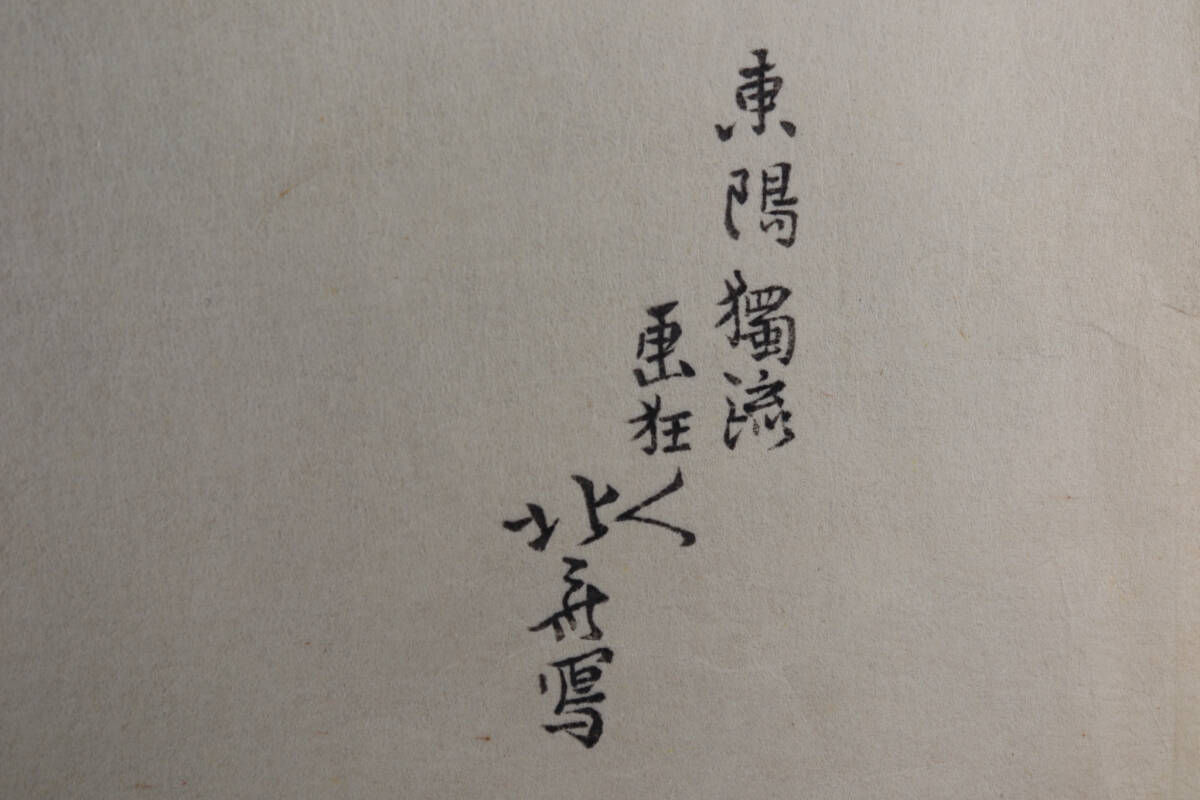 東陽獨流
画狂人
北斎冩